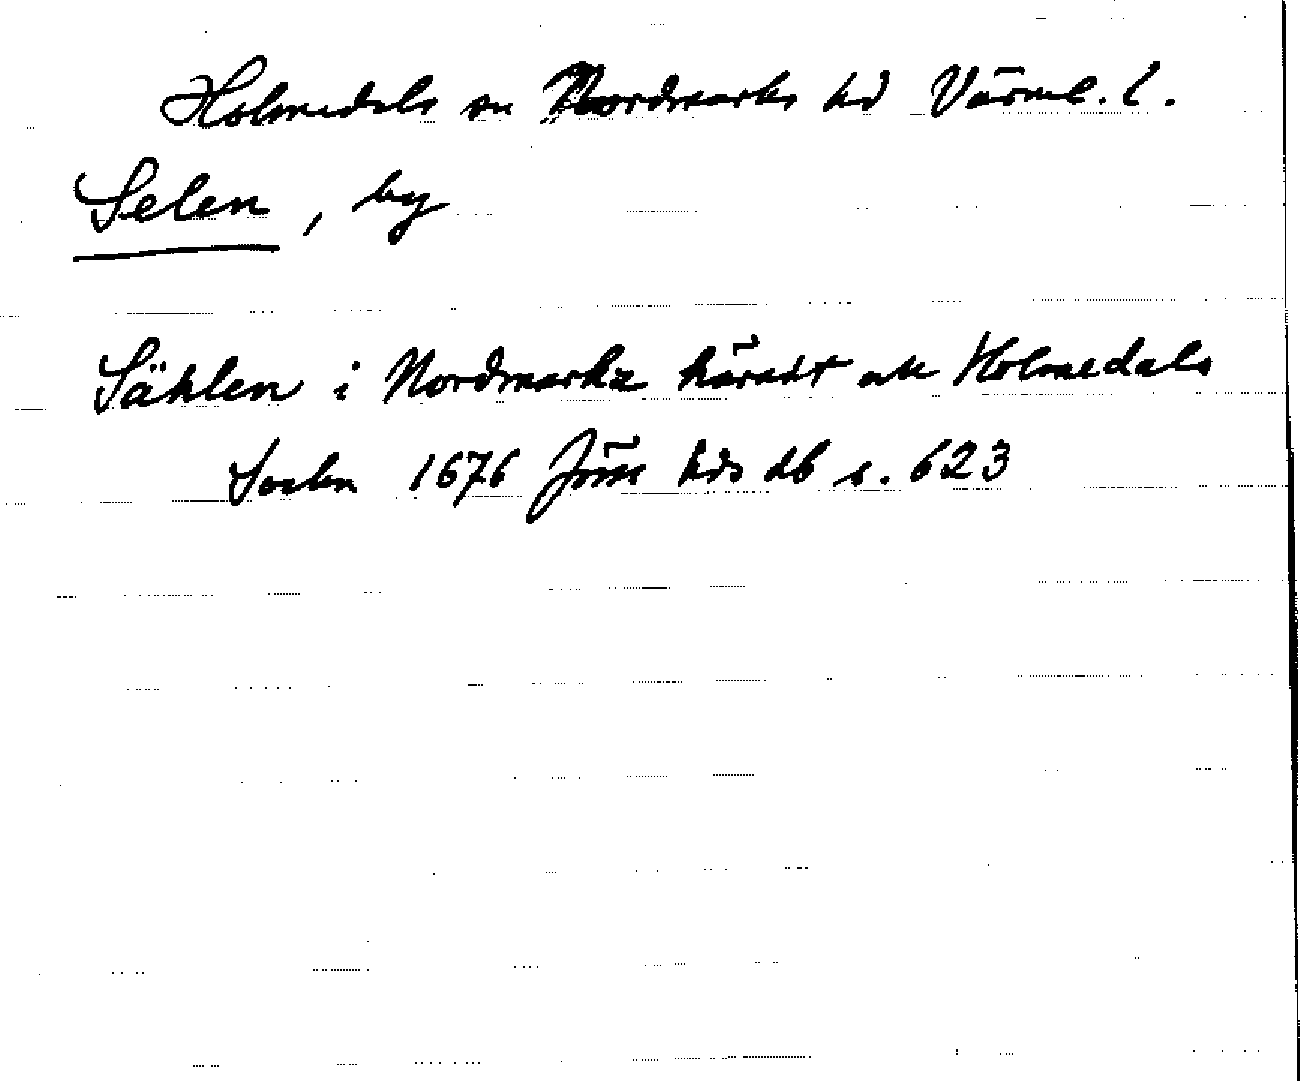 Holmedals sn Nordmarks hd Värml. l.
Selen, by
Sählen i Nordmarks häradt och Holmedals
Sochn 1676 Jöss hds db s. 623